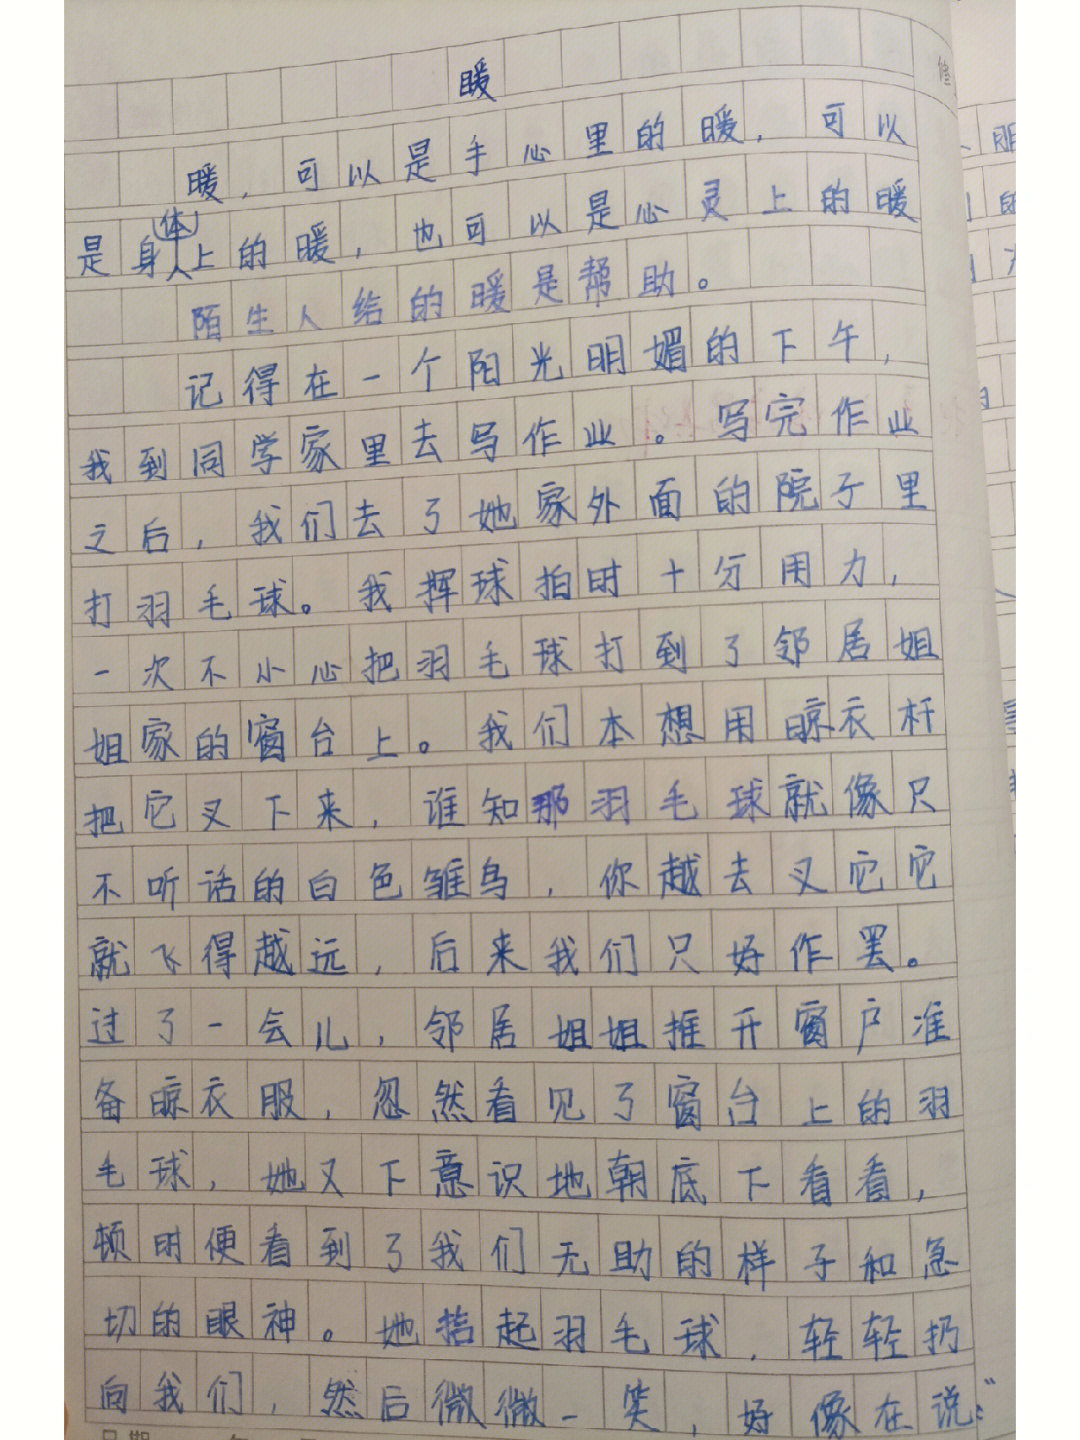 暖
暖，可以是手心里的暖，可以
是身体上的暖，也可以是心灵上的暖
陌生人给的暖是帮助。
记得在一个阳光明媚的下午，
我到同学家里去写作业。写完作业
之后，我们去了她家外面的院子里
打羽毛球。我挥球拍时十分用力，
一次不小心把羽毛球打到了邻居姐
姐家的窗台上。我们本想用晾衣杆
把它叉下来，谁知那羽毛球就像只
不听话的白色雏鸟，你越去叉它它
就飞得越远，后来我们只好作罢。
过了一会儿，邻居姐姐推开窗户准
备晾衣服，忽然看见了窗台上的羽
毛球，她又下意识地朝底下看看，
顿时便看到了我们无助的样子和急
切的眼神。她拾起羽毛球，轻轻扔
向我们，然后微微一笑，好像在说：“